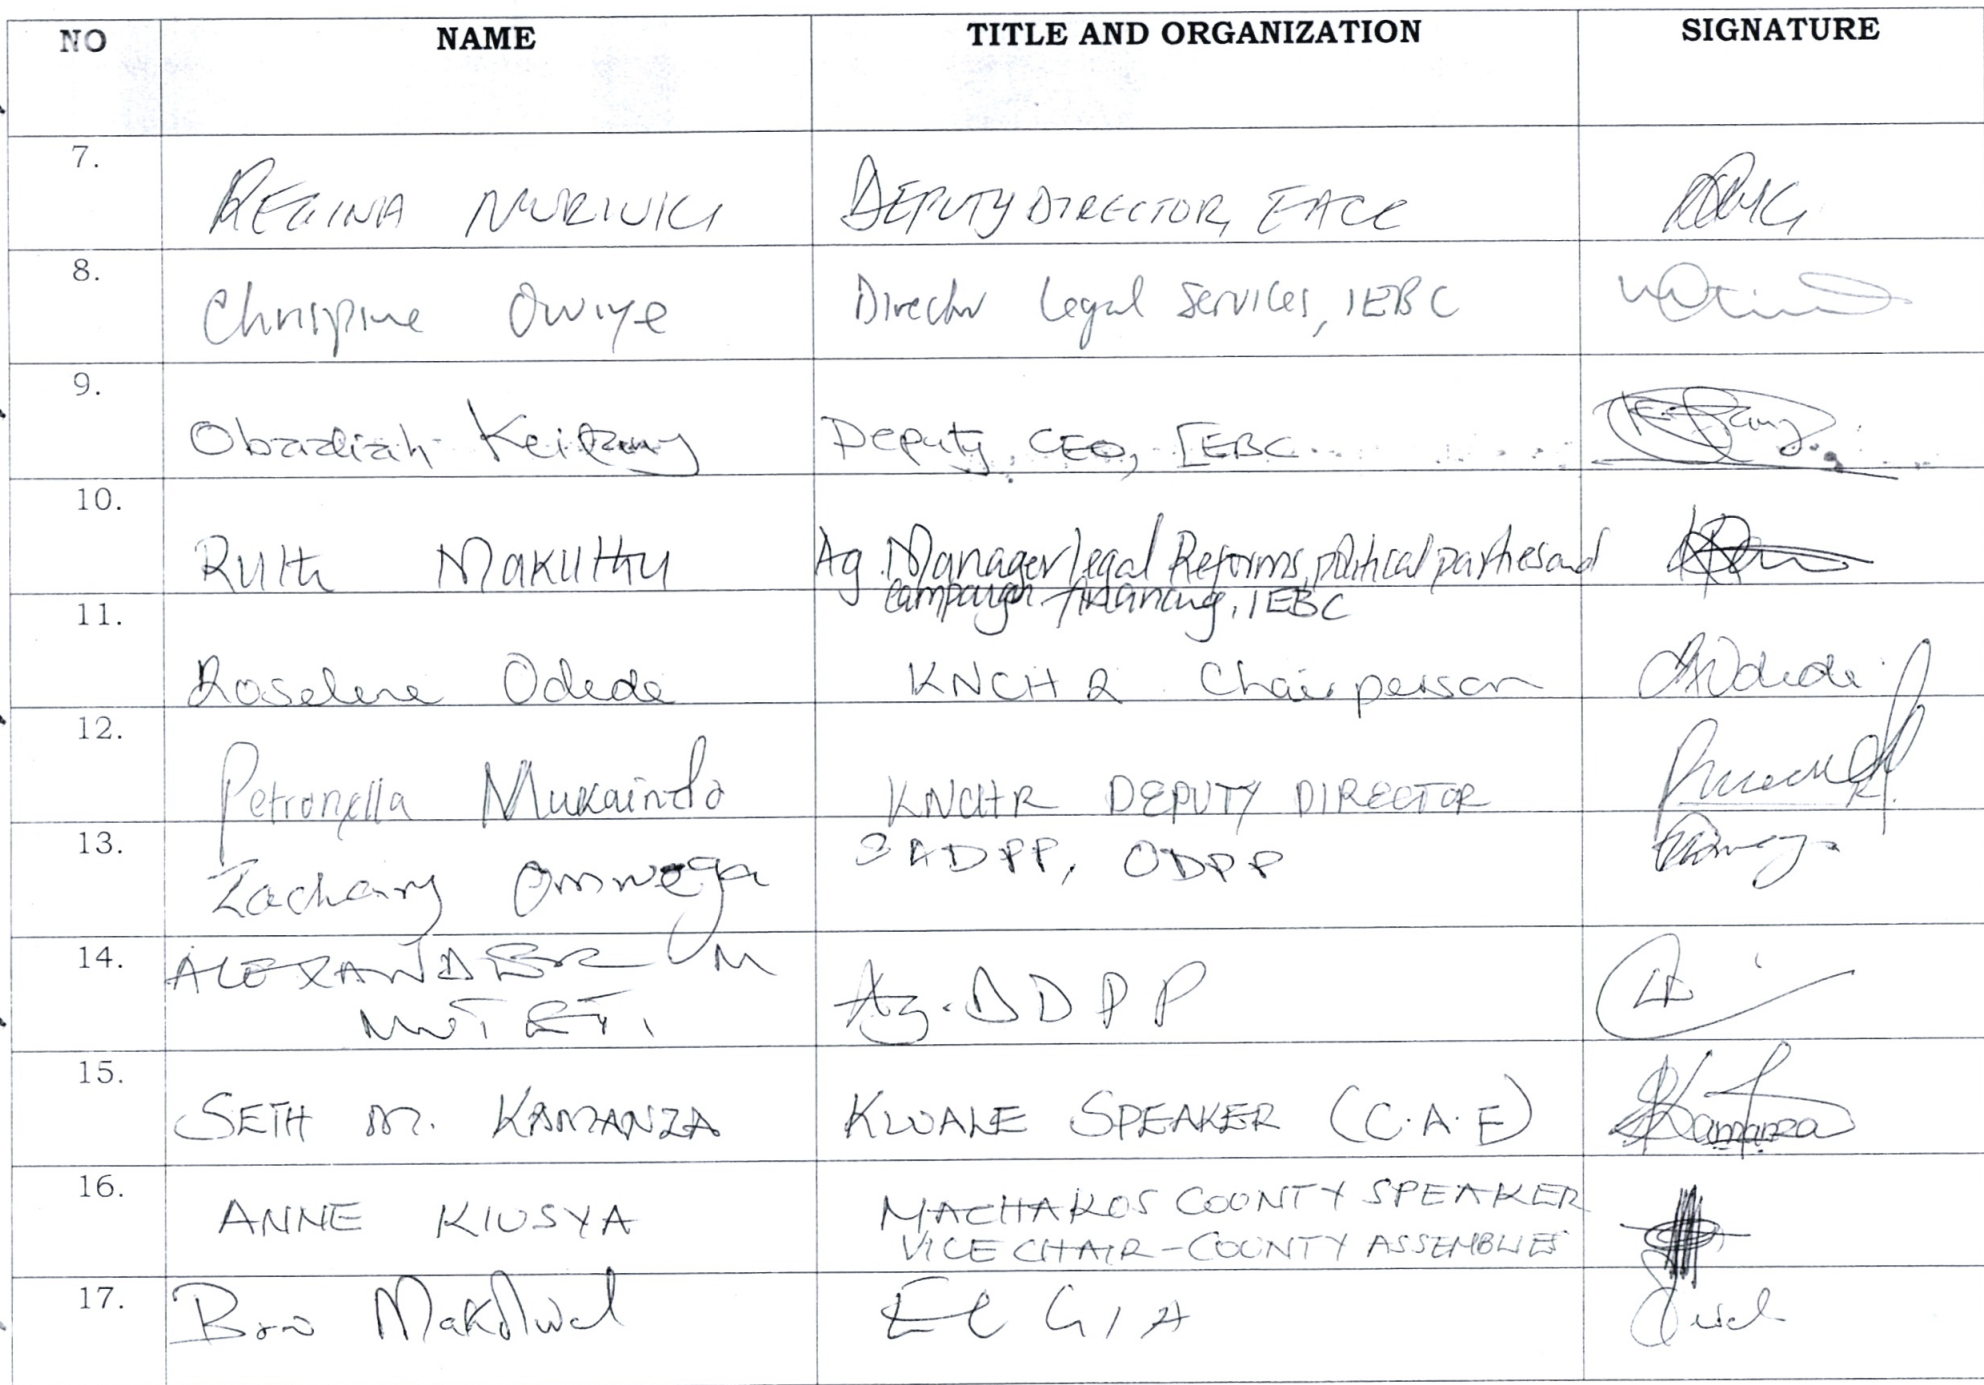 NO NAME TITLE AND ORGANIZATION SIGNATURE
7. REGINA MURIUKI DEPUTY DIRECTOR, EACC
8. Chrispine Owiye Director Legal Services, IEBC
9. Obadiah Keitany Deputy CEO, IEBC
10. Ruth Makuthu Ag. Manager legal Reforms, political parties and
campaign financing, IEBC
11. Roselene Odede KNCHR Chairperson Odede
12. Petronella Mukaindo KNCHR DEPUTY DIRECTOR
13. Zachary Omwega SADPP, ODPP
14. ALEXANDER M
MUTETI. Ag. DDPP
15. SETH M. KAMANZA KWALE SPEAKER (C.A.F) Kamanza
16. ANNE KIUSYA MACHAKOS COUNTY SPEAKER
VICE CHAIR - COUNTY ASSEMBLIES
17.